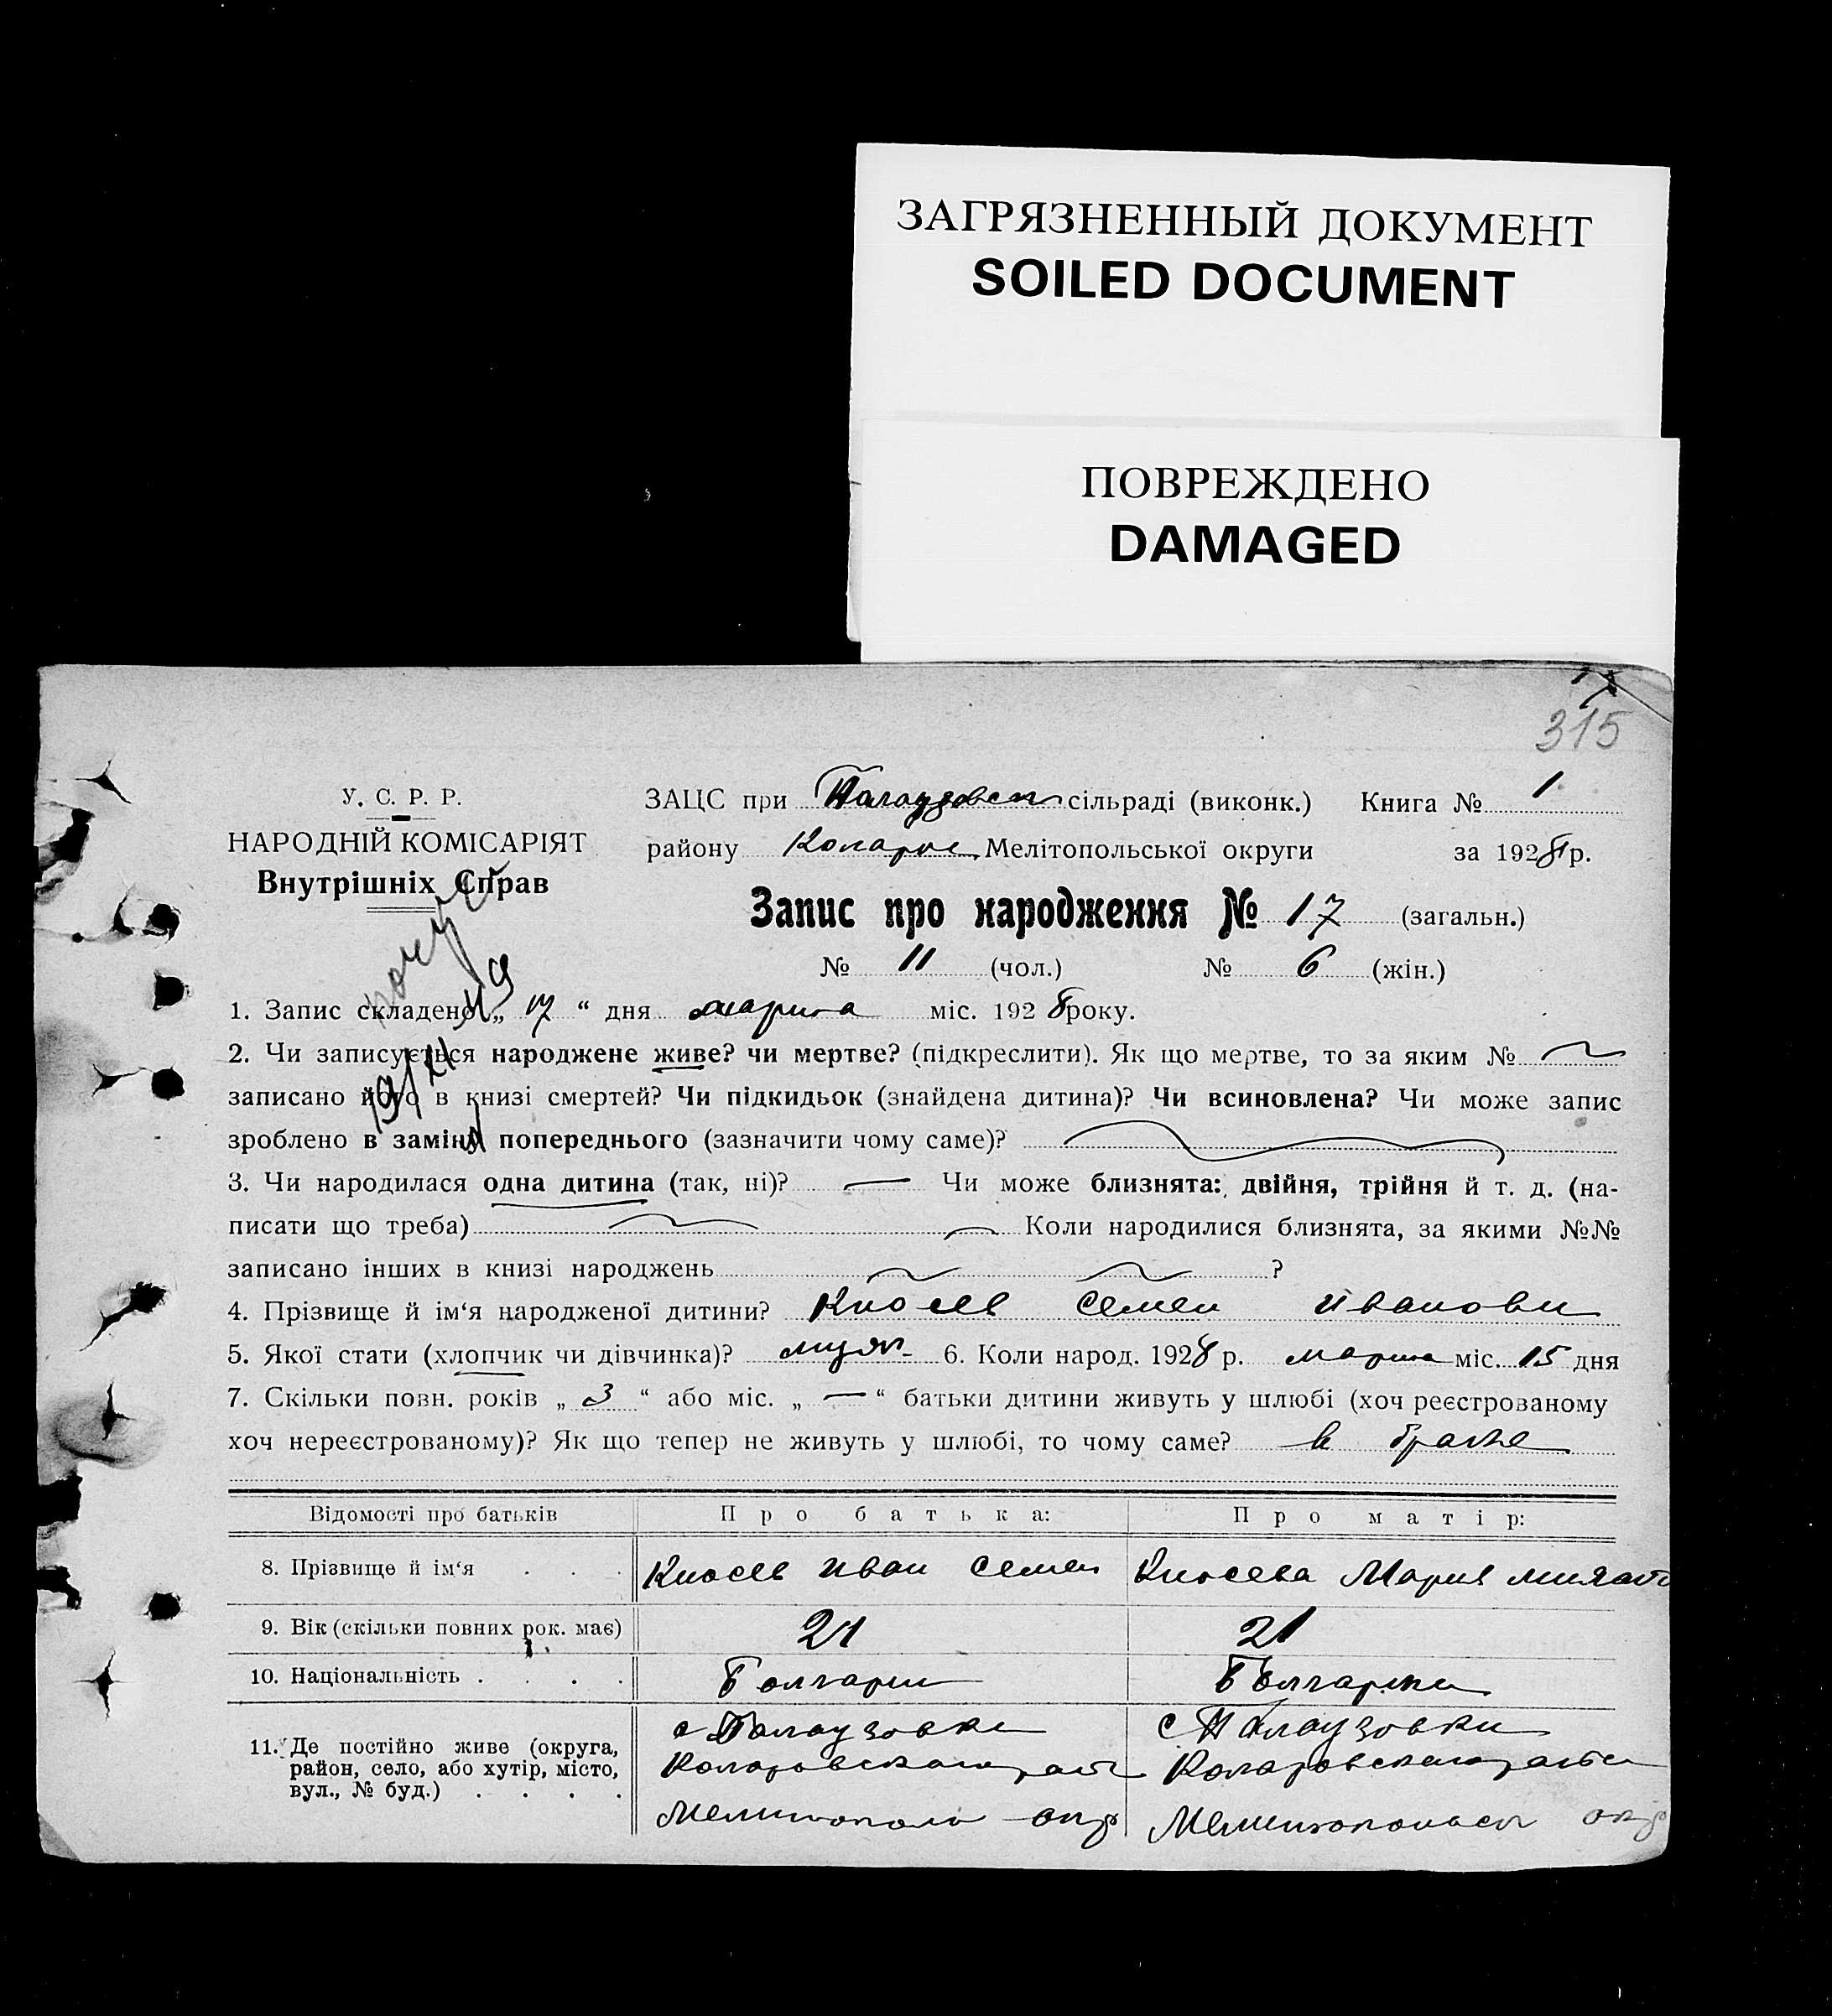 ЗАГРЯЗНЕННЫЙ ДОКУМЕНТ
SOILED DOCUMENT
ПОВРЕЖДЕНО
DAMAGED
315
У. С. Р. Р.
НАРОДНІЙ КОМІСАРІЯТ
Внутрішніх Справ
ЗАЦС при Палаузовск сільраді (виконк.) Книга № 1
району Коларов Мелітопольської округи за 1928 р.
Запис про народження № 17 (загальн.)
№ 11 (чол.) № 6 (жін.)
1. Запис складено „ 17 “ дня марта міс. 1928 року.
2. Чи записується народжене живе? чи мертве? (підкреслити). Як що мертве, то за яким №
записано його в книзі смертей? Чи підкидьок (знайдена дитина)? Чи всиновлена? Чи може запис
зроблено в заміну попереднього (зазначити чому саме)?
3. Чи народилася одна дитина (так, ні)? — Чи може близнята: двійня, трійня й т. д. (на-
писати що треба) Коли народилися близнята, за якими №№
записано інших в книзі народжень ?
4. Прізвище й ім‘я народженої дитини? Кносев Семен Иванови
5. Якої стати (хлопчик чи дівчинка)? муж. 6. Коли народ. 1928 р. марта міс. 15 дня
7. Скільки повн. років „ 3 “ або міс. „ — “ батьки дитини живуть у шлюбі (хоч реєстрованому
хоч нереєстрованому)? Як що тепер не живуть у шлюбі, то чому саме? в браке
Відомості про батьків Про батька: Про матір:
8. Прізвище й ім‘я . . . Кносев Иван Семен Кносева Мария
9. Вік (скільки повних рок. має) 21 21
10. Національність . . . . Болгарин Болгарка
11. Де постійно живе (округа, район, село, або хутір, місто, вул., № буд.) . . . .
с Палаузовка с Палаузовки
Коларовского Коларовского
Мелитополь окр Мелитопольск окр